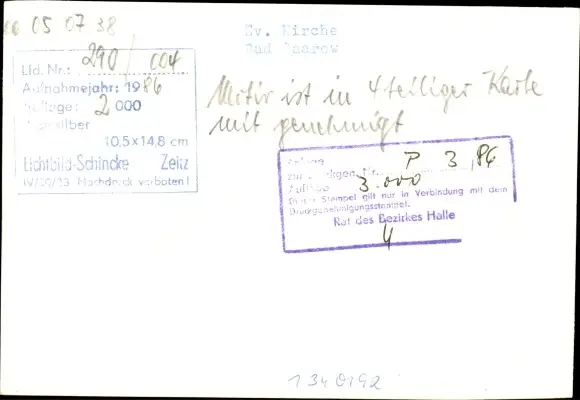 05 07 38
Ev. Kirche
Bad Saarow
Lfd. Nr.: 290/004
Aufnahmejahr: 1986
Auflage: 2 000
10,5x14,8 cm
Lichtbild-Schincke Zeitz
Nachdruck verboten!
Motiv ist in 4teiliger Karte
mit genehmigt
P 3,86
3.000
Dieser Stempel gilt nur in Verbindung mit dem
Druckgenehmigungsstempel.
Rat des Bezirkes Halle
4
1340192